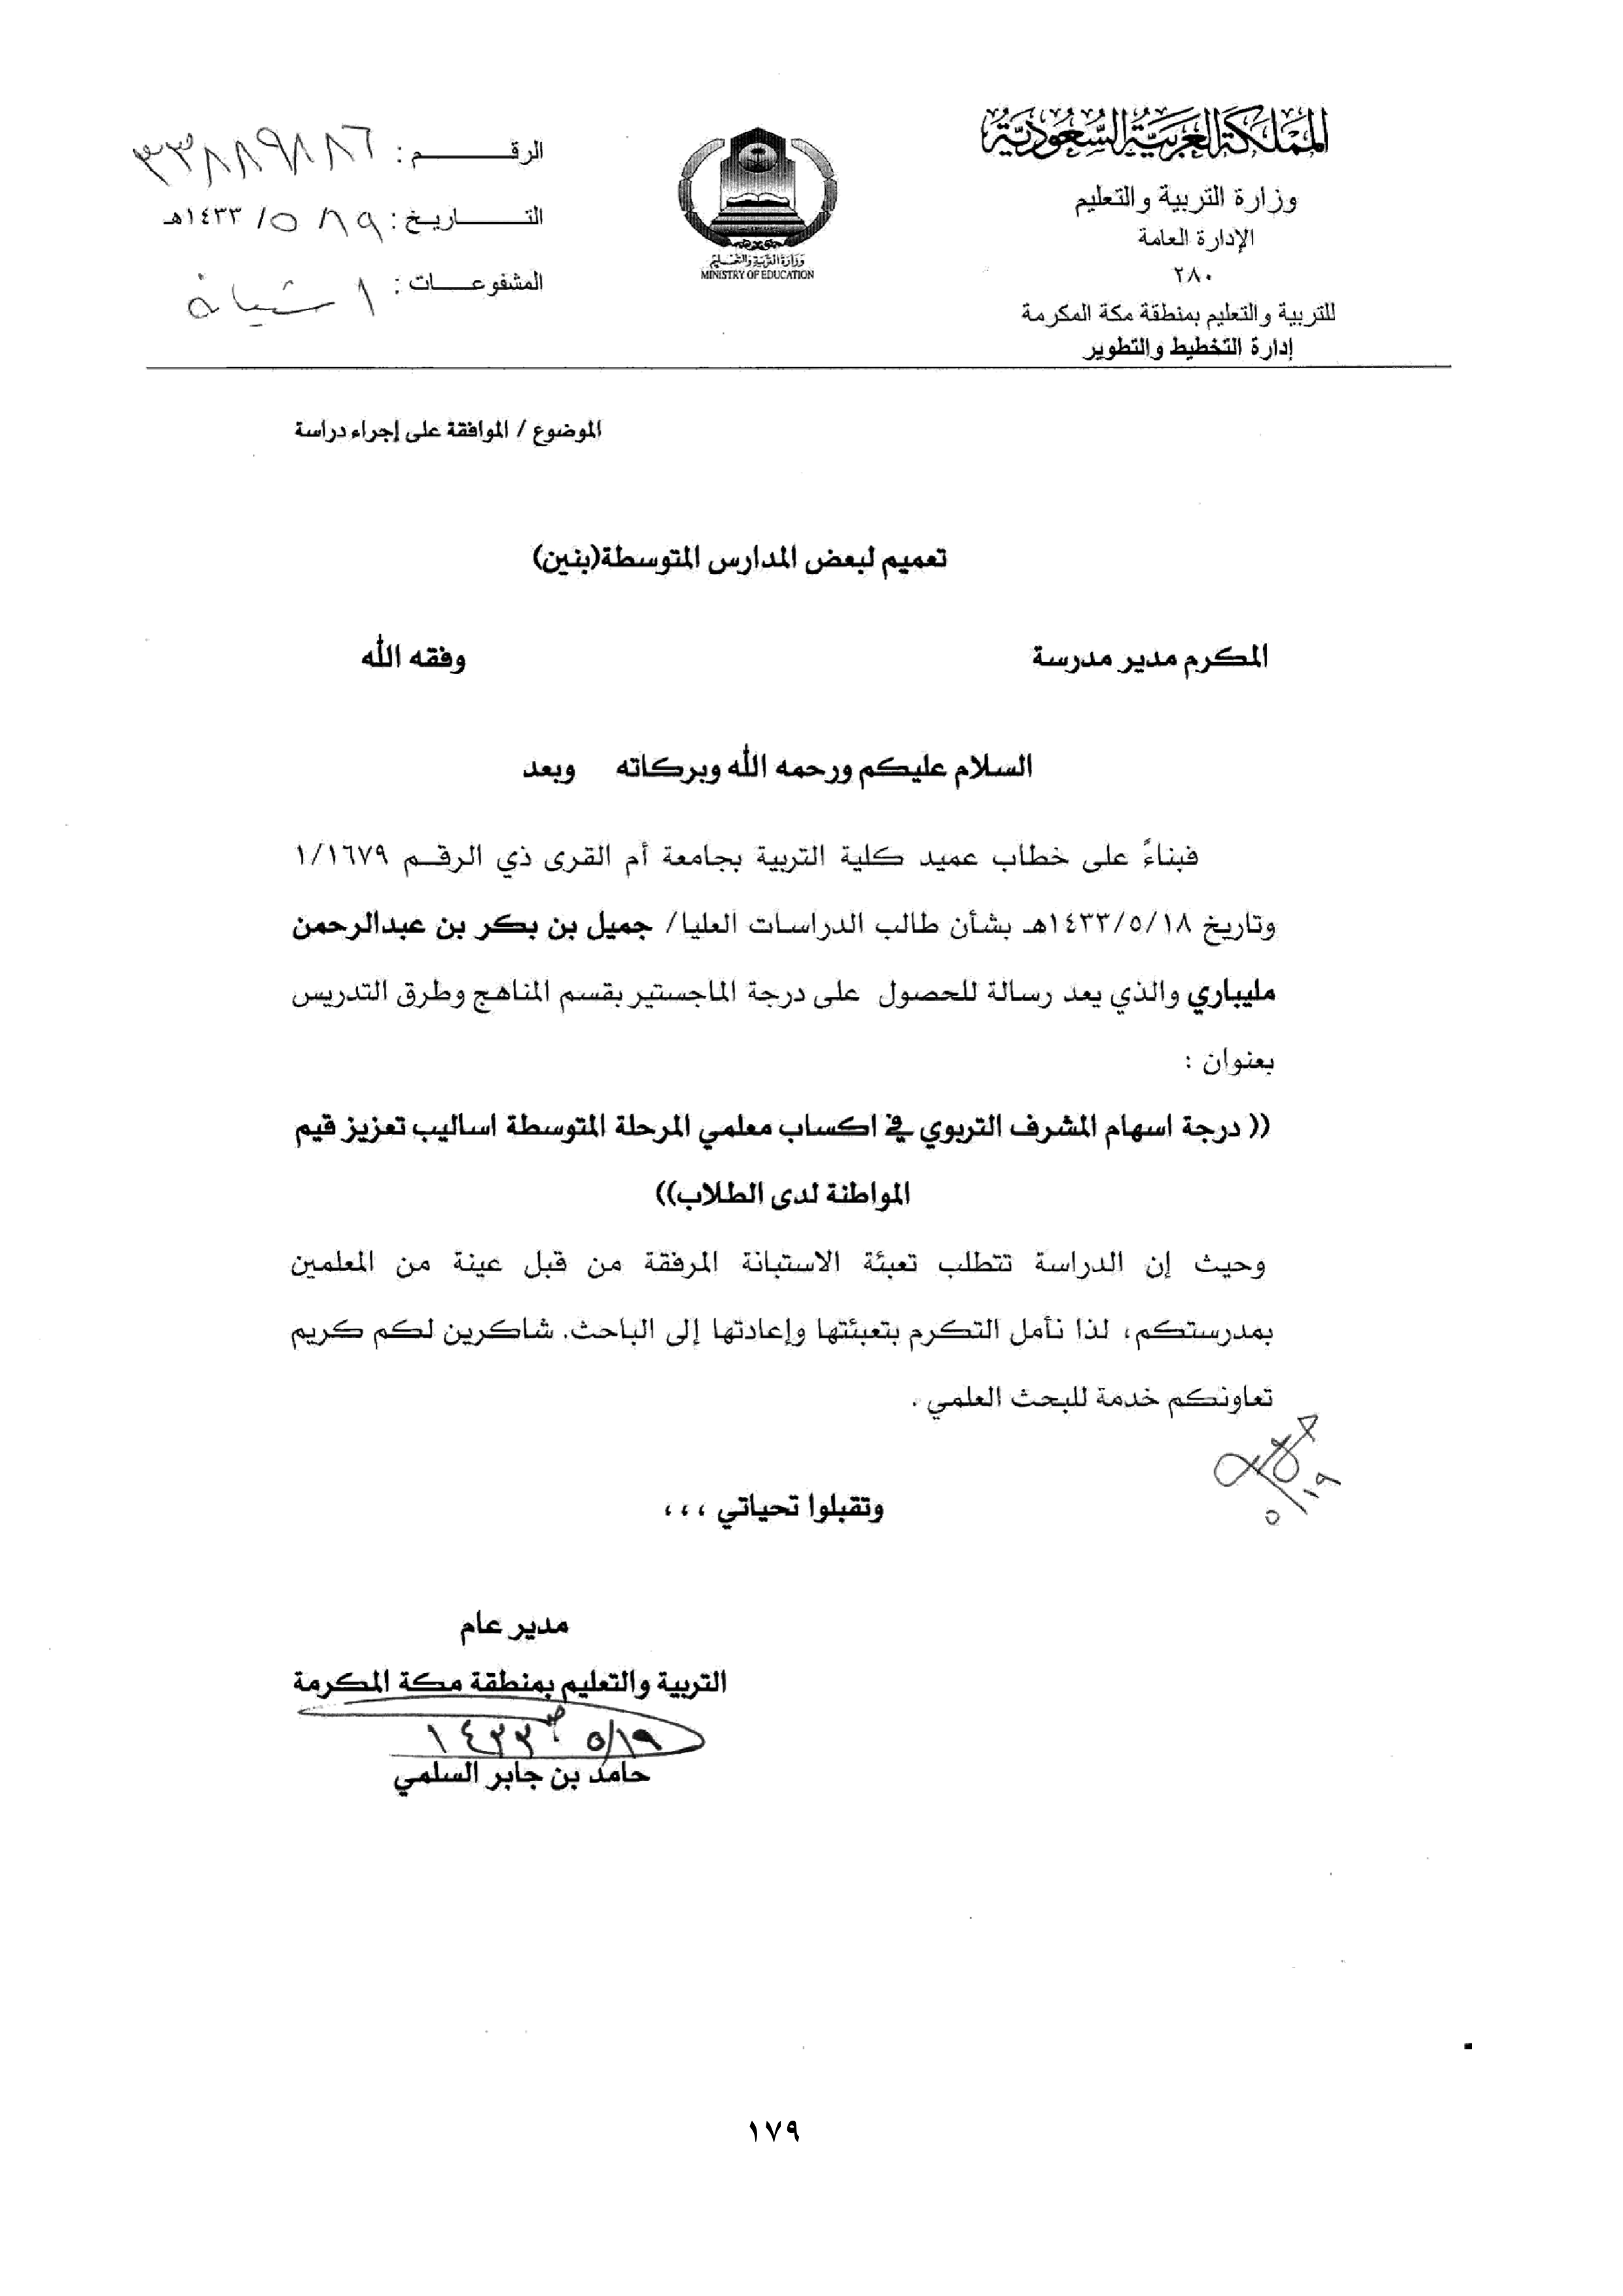 المملكة العربية السعودية
وزارة التربية والتعليم
الإدارة العامة
٢٨٠
للتربية والتعليم بمنطقة مكة المكرمة
إدارة التخطيط والتطوير
وزارة التربية والتعليم
MINISTRY OF EDUCATION
الرقــــــم : ٣٣٨٨٩٨٨٦
التـــــــاريخ : ١٩ / ٥ / ١٤٣٣هـ
المشفوعـــــات : ١ ستبانة
الموضوع / الموافقة على إجراء دراسة
تعميم لبعض المدارس المتوسطة(بنين)
المكرم مدير مدرسة وفقه الله
السلام عليكم ورحمه الله وبركاته وبعد
فبناءً على خطاب عميد كلية التربية بجامعة أم القرى ذي الرقـم ١/١٦٧٩
وتاريخ ١٤٣٣/٥/١٨هـ بشأن طالب الدراسات العليا/ جميل بن بكر بن عبدالرحمن
مليباري والذي يعد رسالة للحصول على درجة الماجستير بقسم المناهج وطرق التدريس
بعنوان :
(( درجة اسهام المشرف التربوي في اكساب معلمي المرحلة المتوسطة اساليب تعزيز قيم
المواطنة لدى الطلاب))
وحيث إن الدراسة تتطلب تعبئة الاستبانة المرفقة من قبل عينة من المعلمين
بمدرستكم، لذا نأمل التكرم بتعبئتها وإعادتها إلى الباحث. شاكرين لكم كريم
تعاونكم خدمة للبحث العلمي .
٥/١٩
وتقبلوا تحياتي ، ، ،
مدير عام
التربية والتعليم بمنطقة مكة المكرمة
٥/١٩ ١٤٣٣
حامد بن جابر السلمي
١٧٩